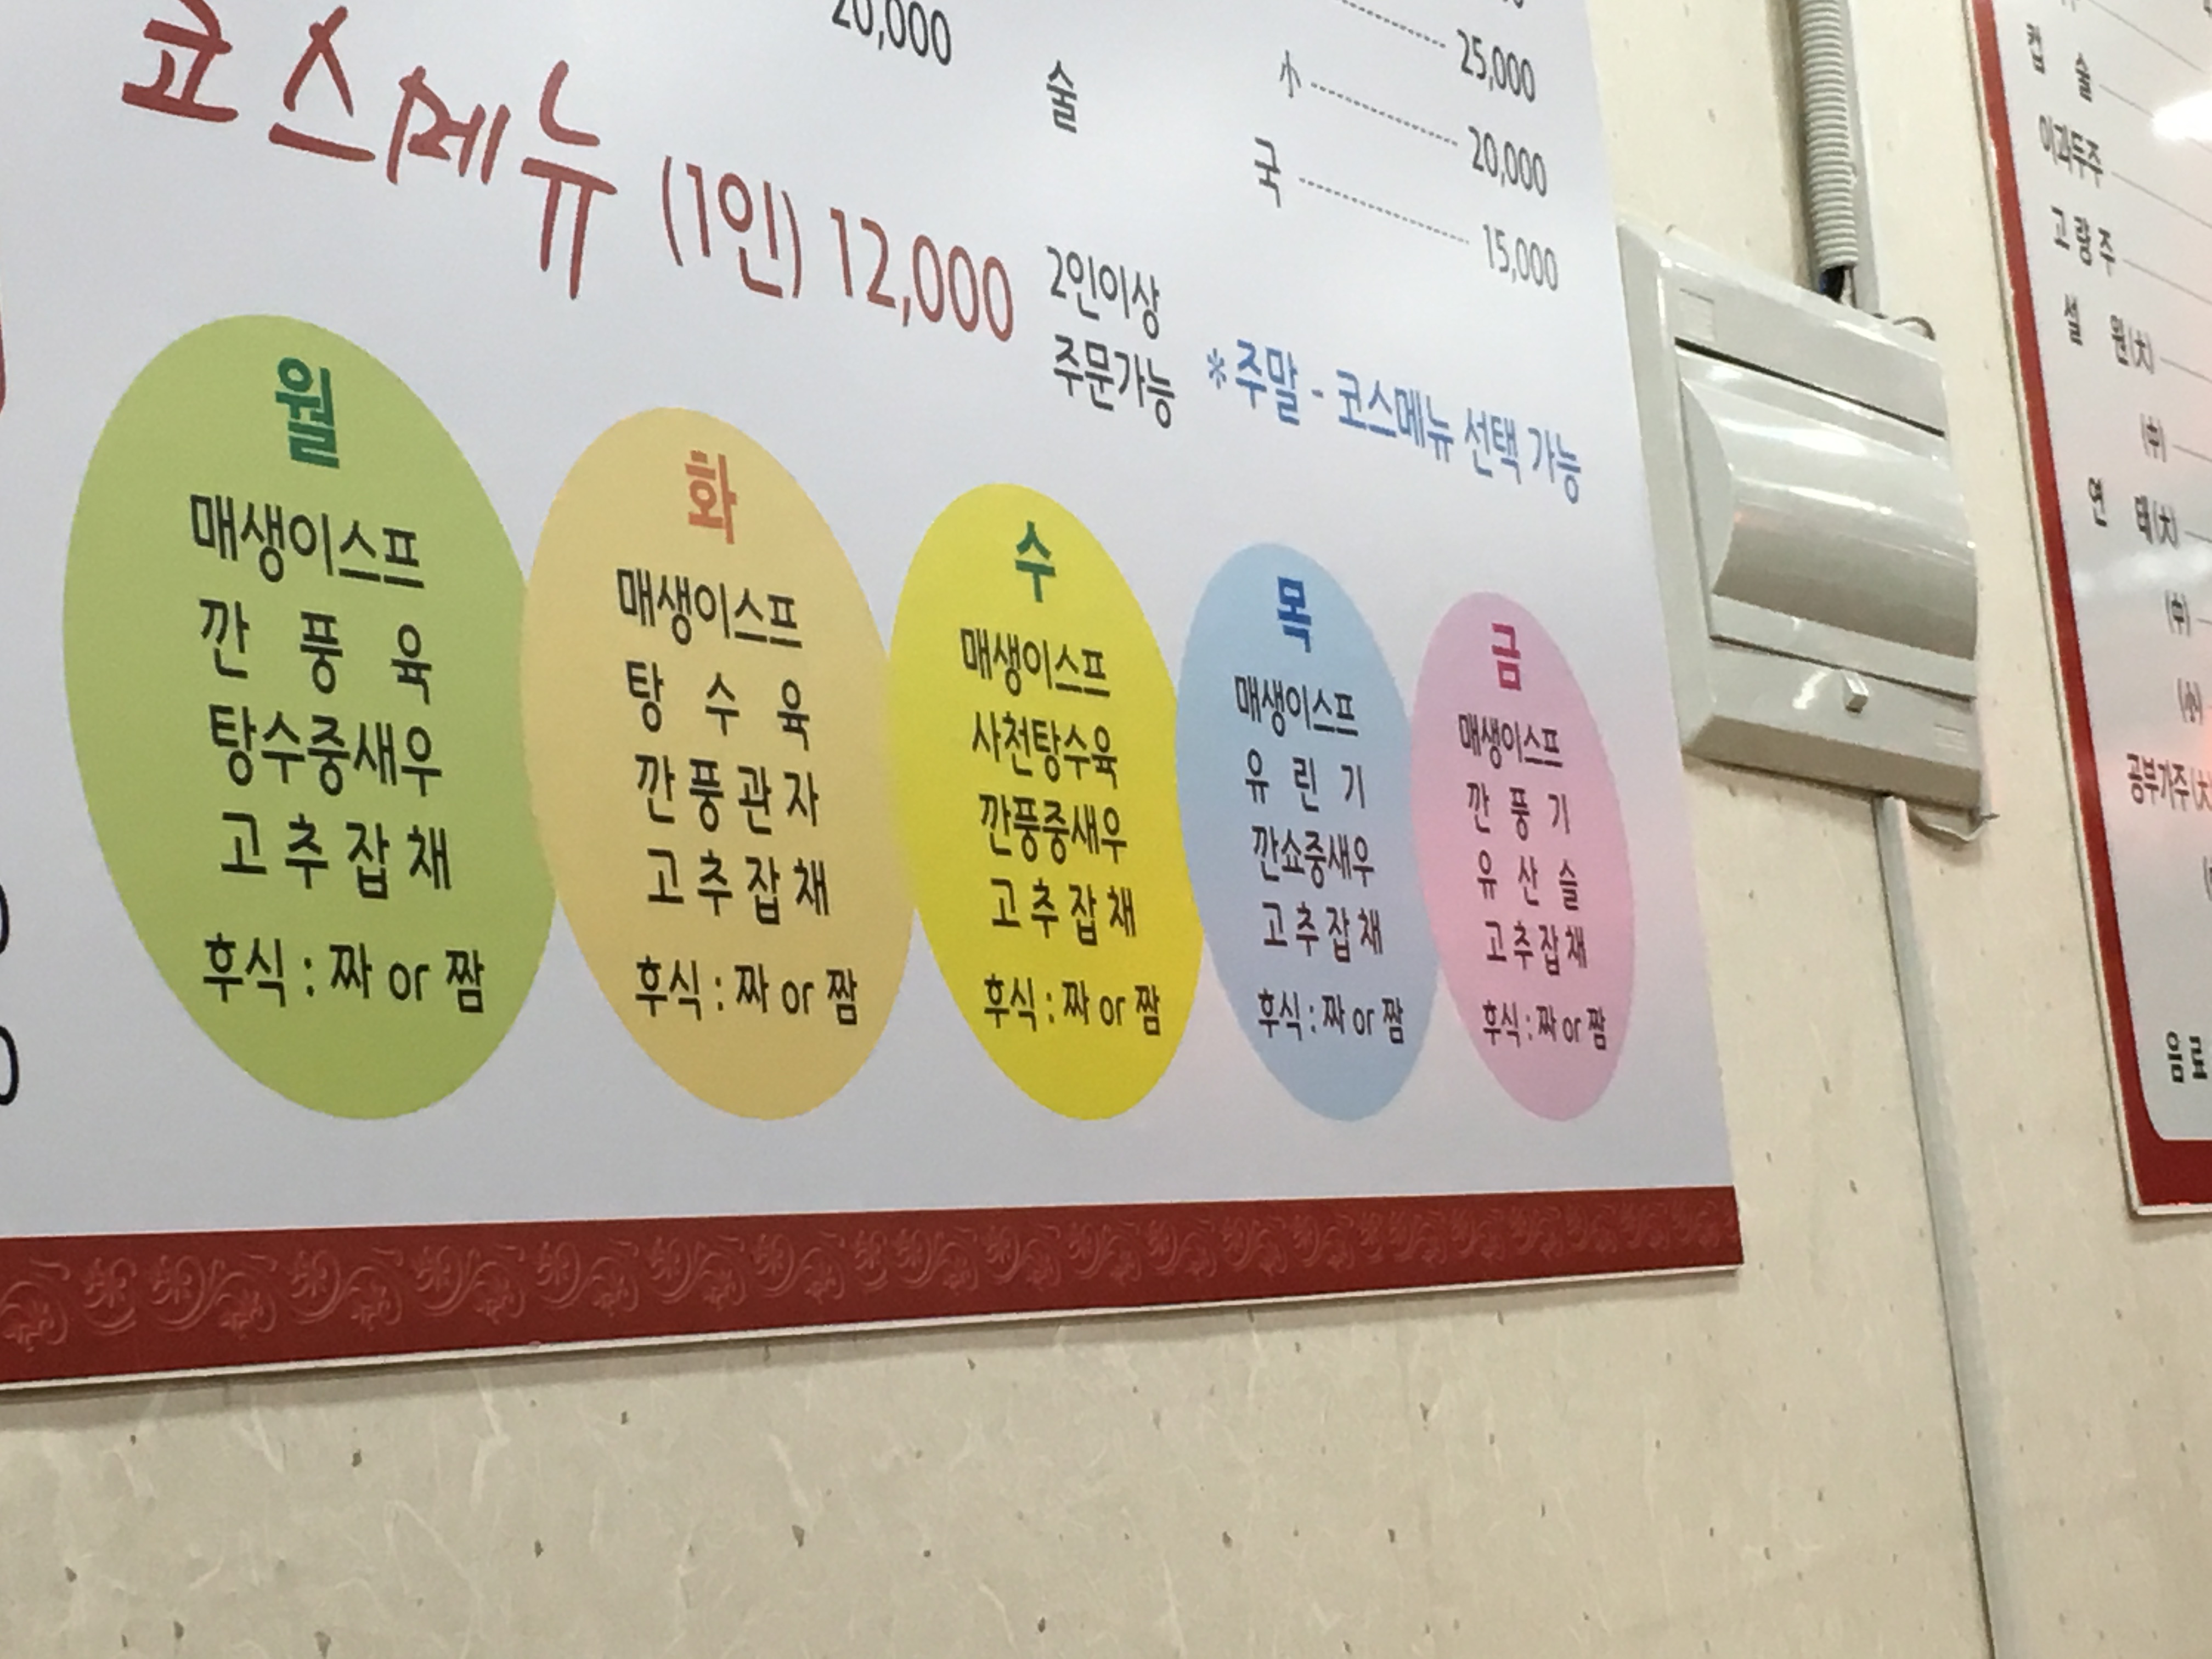 20,000
25,000
小 20,000
술 국 15,000
코스메뉴 (1인) 12,000
2인이상
주문가능
*주말 - 코스메뉴 선택 가능
월
매생이스프
깐풍육
탕수중새우
고추잡채
후식 : 짜 or 짬
화
매생이스프
탕수육
깐풍관자
고추잡채
후식 : 짜 or 짬
수
매생이스프
사천탕수육
깐풍중새우
고추잡채
후식 : 짜 or 짬
목
매생이스프
유린기
깐쇼중새우
고추잡채
후식 : 짜 or 짬
금
매생이스프
깐풍기
유산슬
고추잡채
후식 : 짜 or 짬
컵술
이과두주
고량주
설원(大)
(中)
연태(大)
(中)
(小)
공부가주(大)
음료